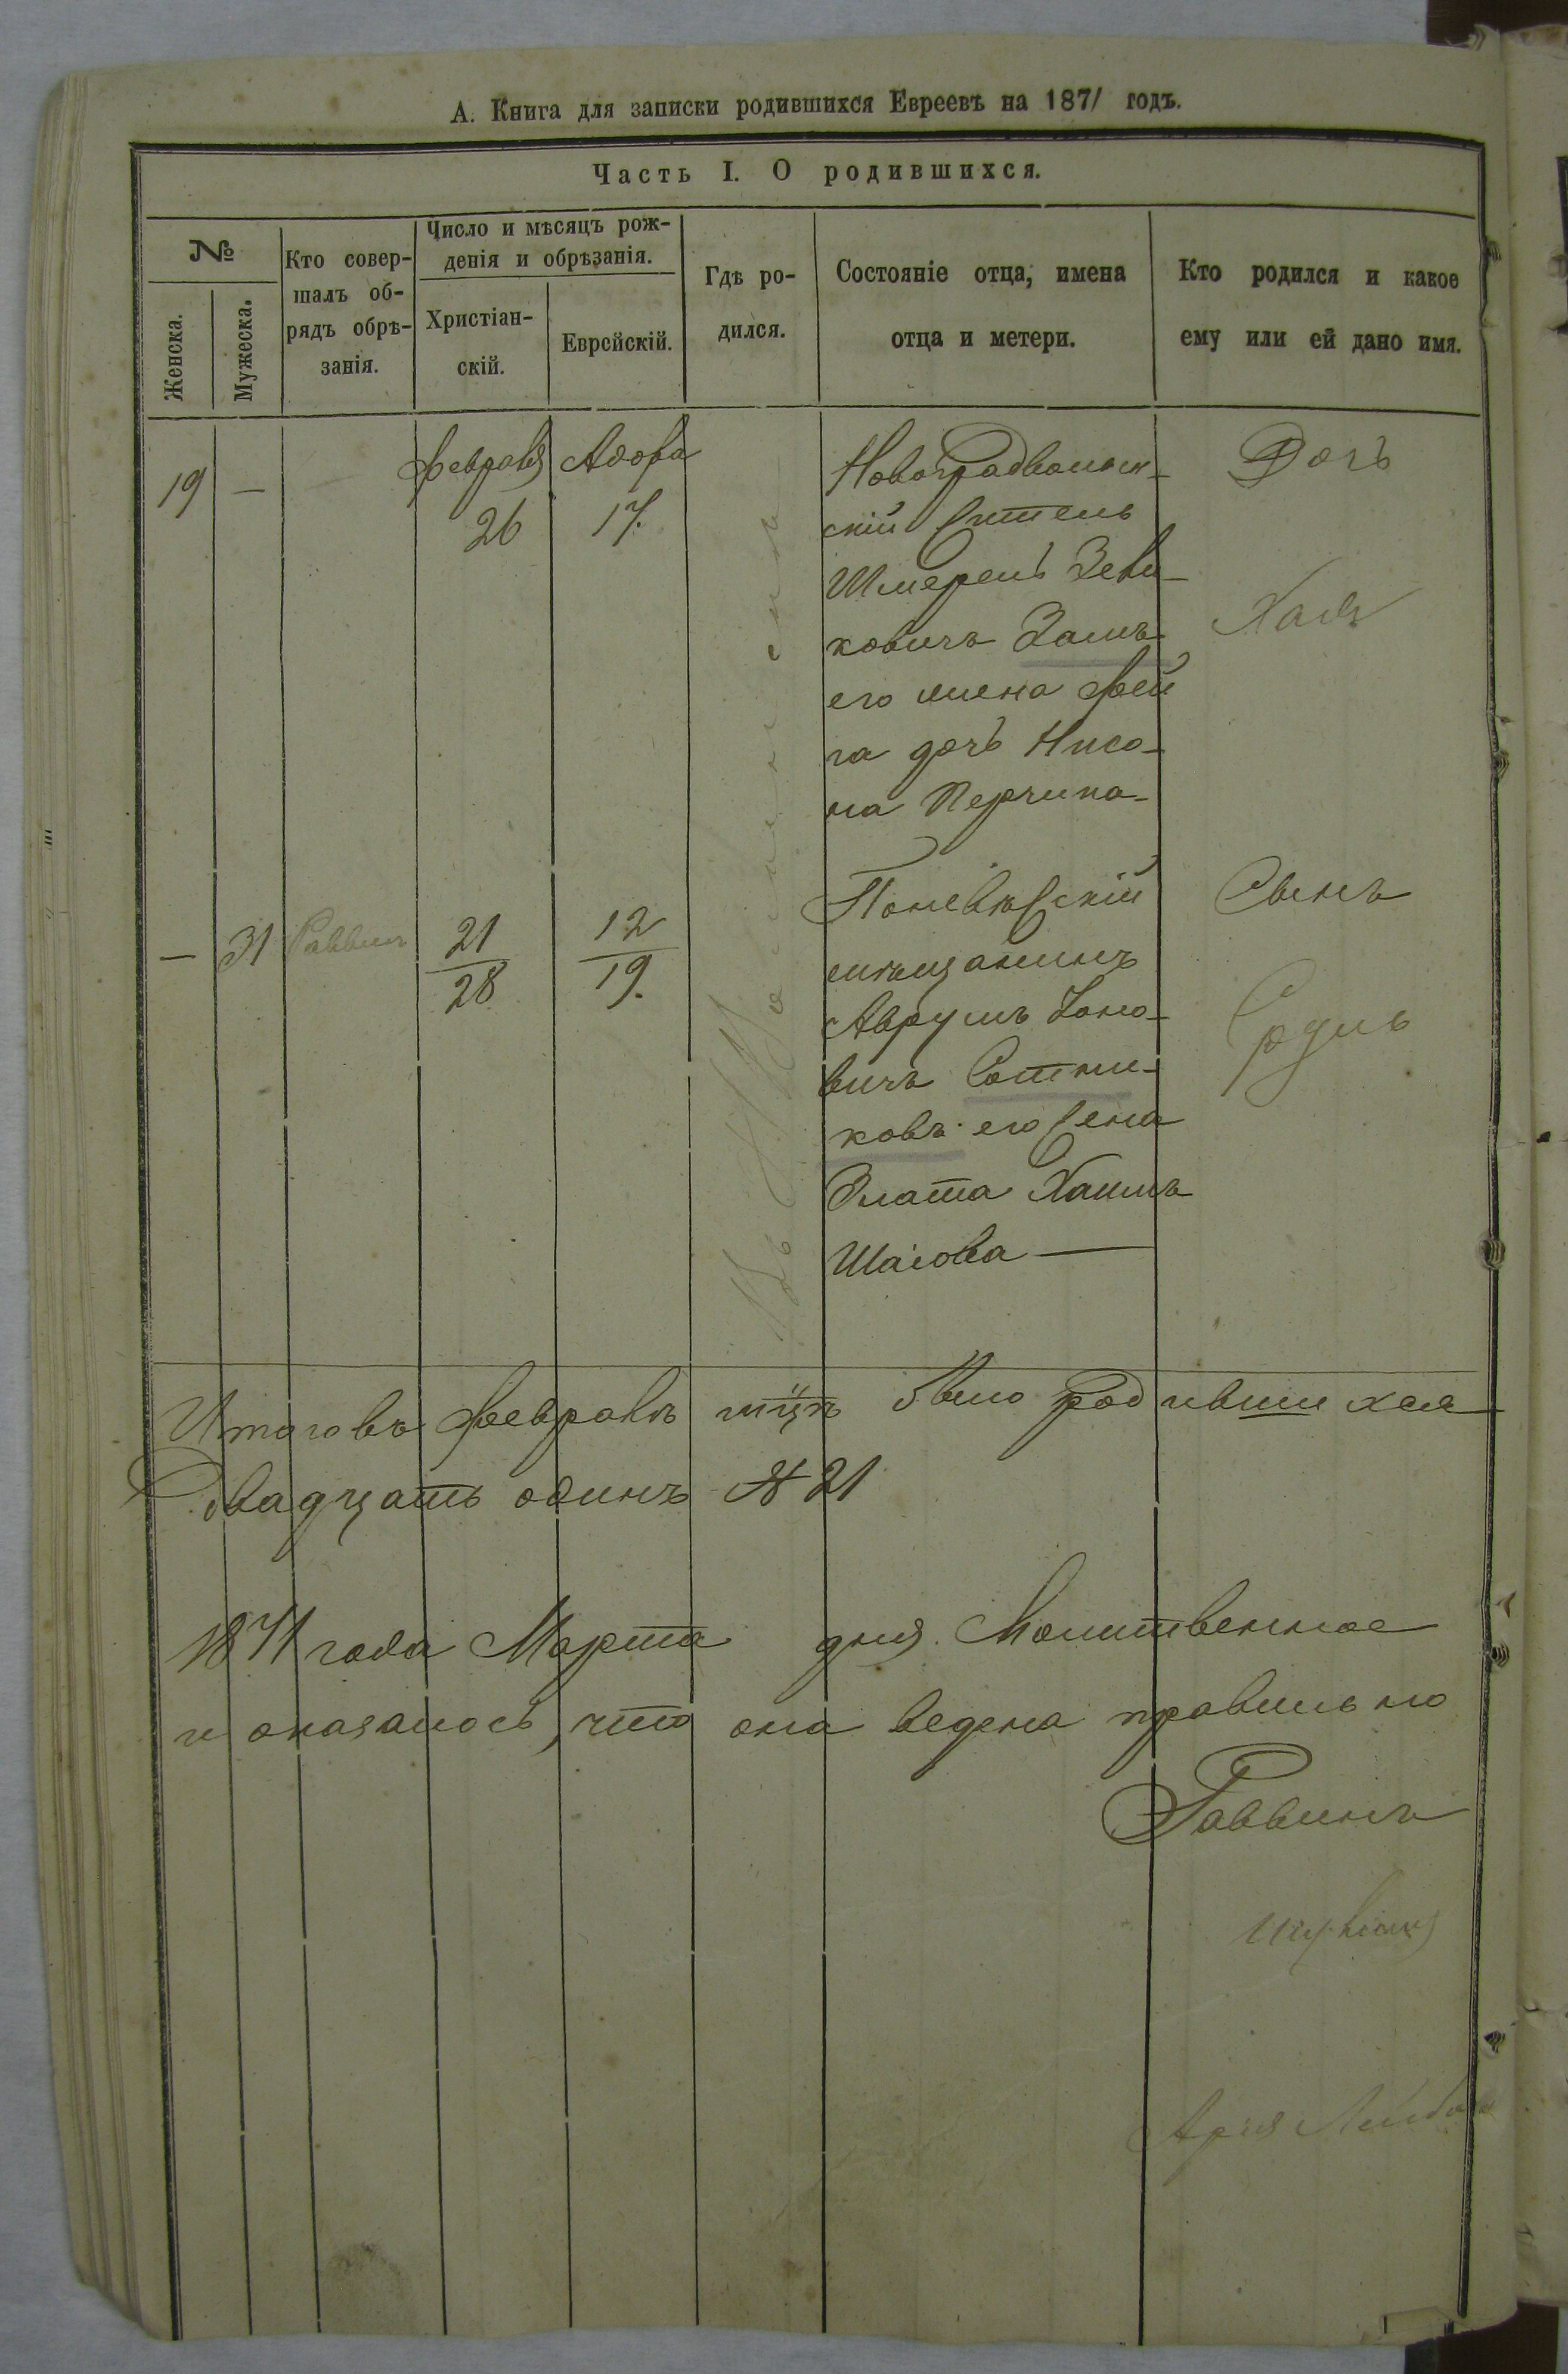 А. Книга для записки родившихся Евреевъ на 1871 годъ.
Часть I. О родившихся.
№
Женска.
Мужеска.
Кто совер-
шалъ об-
рядъ обрѣ-
занія.
Число и мѣсяцъ рож-
денія и обрѣзанія.
Христіан-
скій.
Еврейскій.
Гдѣ ро-
дился.
Состояніе отца, имена
отца и метери.
Кто родился и какое
ему или ей дано имя.
19 —
Февраля
26
Адора
17.
Новоградволын-
скій житель
Шмерель Зевы-
ковичъ Залцъ
его жена Фей
га дочь Нисо-
на Перчика-
Дочь
Хая
— 31
Раввинъ
21
28
12
19.
Поневѣжскій
мѣщанинъ
Аврумъ
вичъ Сотни-
ковъ его жена
Злата Хаимъ
Шаіова —
Сынъ
Срдиль
Итого въ Февралѣ мцѣ было родившихся
Двадцать одинъ № 21
1871 года Марта дня. Молитвенное
и оказалось, что она ведена правильно
Раввинъ
Арія Лейба